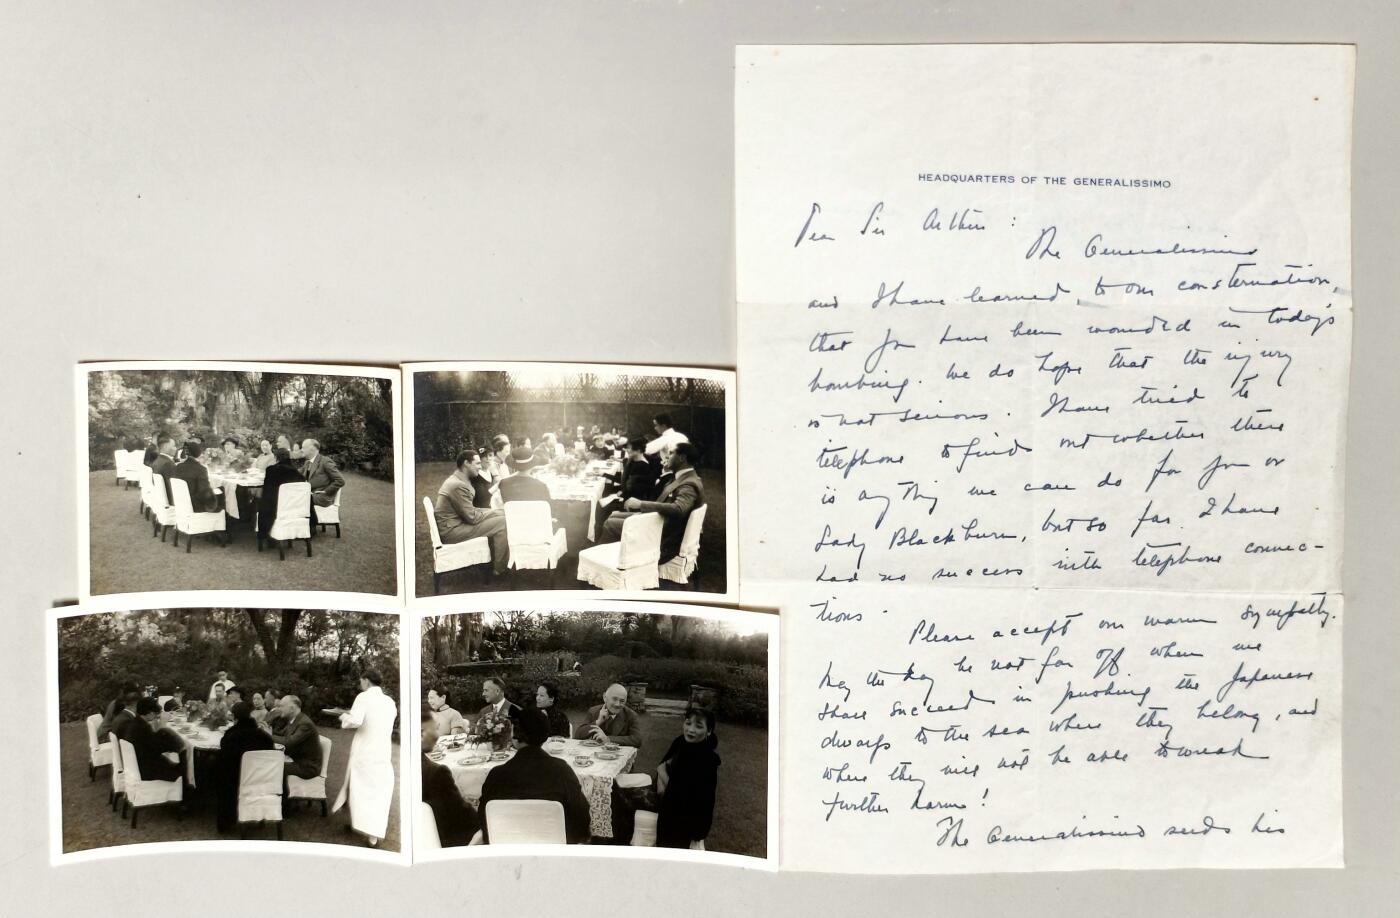 HEADQUARTERS OF THE GENERALISSIMO
Dear Sir Arthur :
The Generalissimo
and I have learned, to our consternation,
that you have been wounded in today's
bombing. We do hope that the injury
is not serious. I have tried to
telephone to find out whether there
is anything we can do for you or
Lady Blackburn, but so far I have
had no success with telephone connec-
tions.
Please accept our warm sympathy.
May the day be not far off when we
shall succeed in pushing the Japanese
dwarfs to the sea where they belong, and
where they will not be able to wreak
further harm!
The Generalissimo sends his